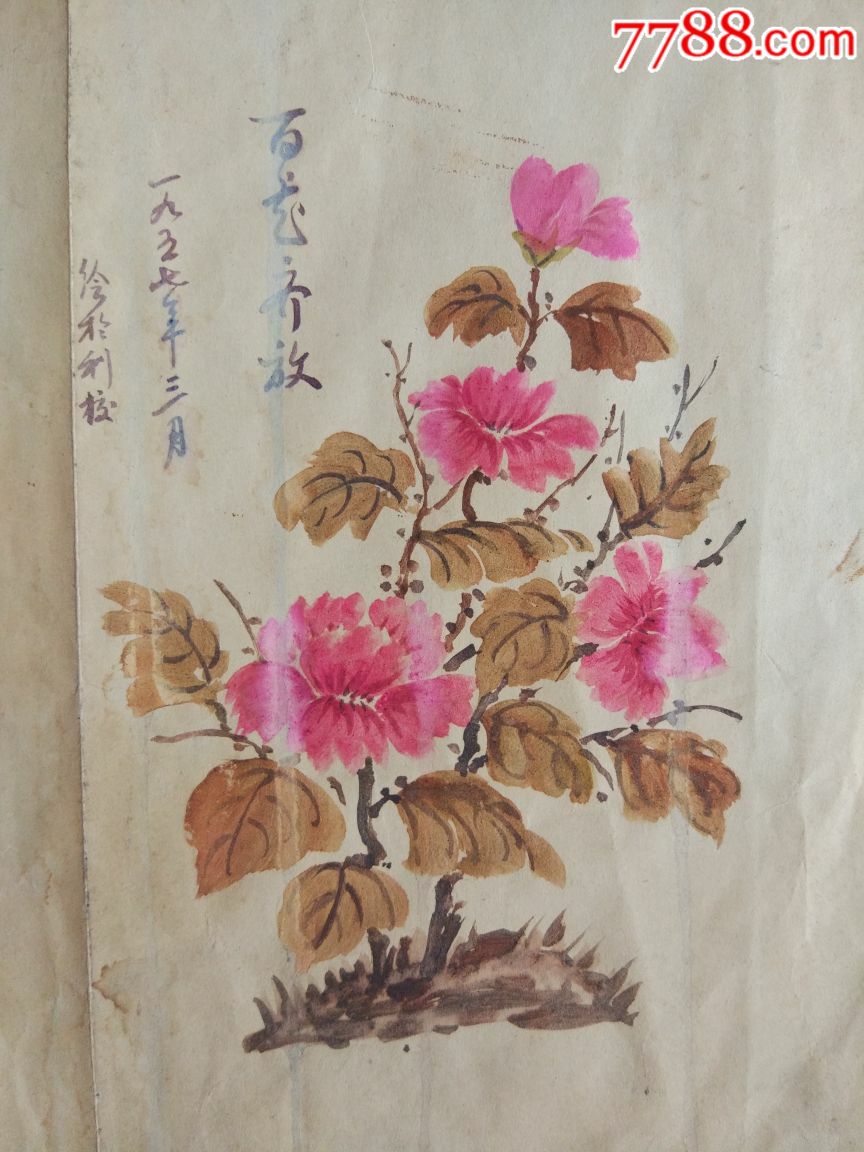 7788.com
百花齐放
一九五七年三月
绘於利校